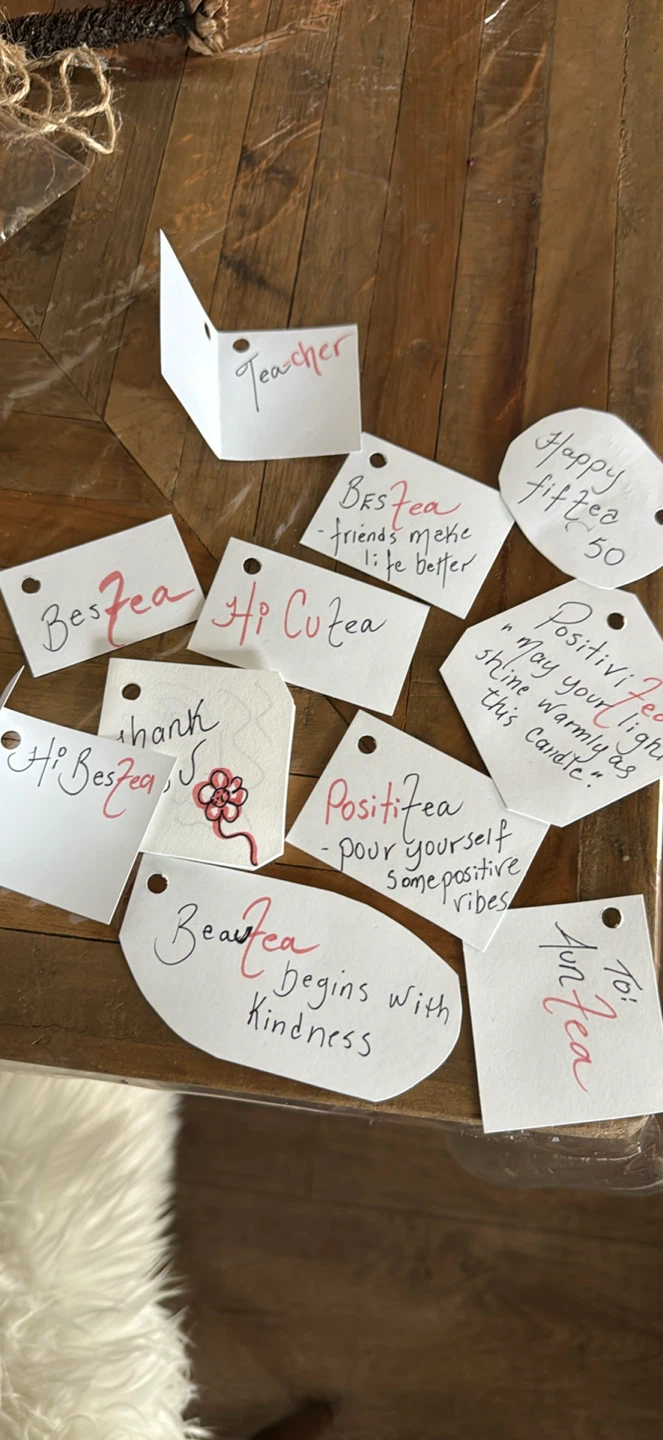 Teacher
BesTea
-friends make
life better
Happy
fiftea
50
BesTea
Hi CuTea
PositiviTea
"may your light
shine warmly as
this candle."
Thank
U
Hi BesTea
PositiTea
- pour yourself
some positive
vibes
BeauTea
begins with
Kindness
To:
AunTea